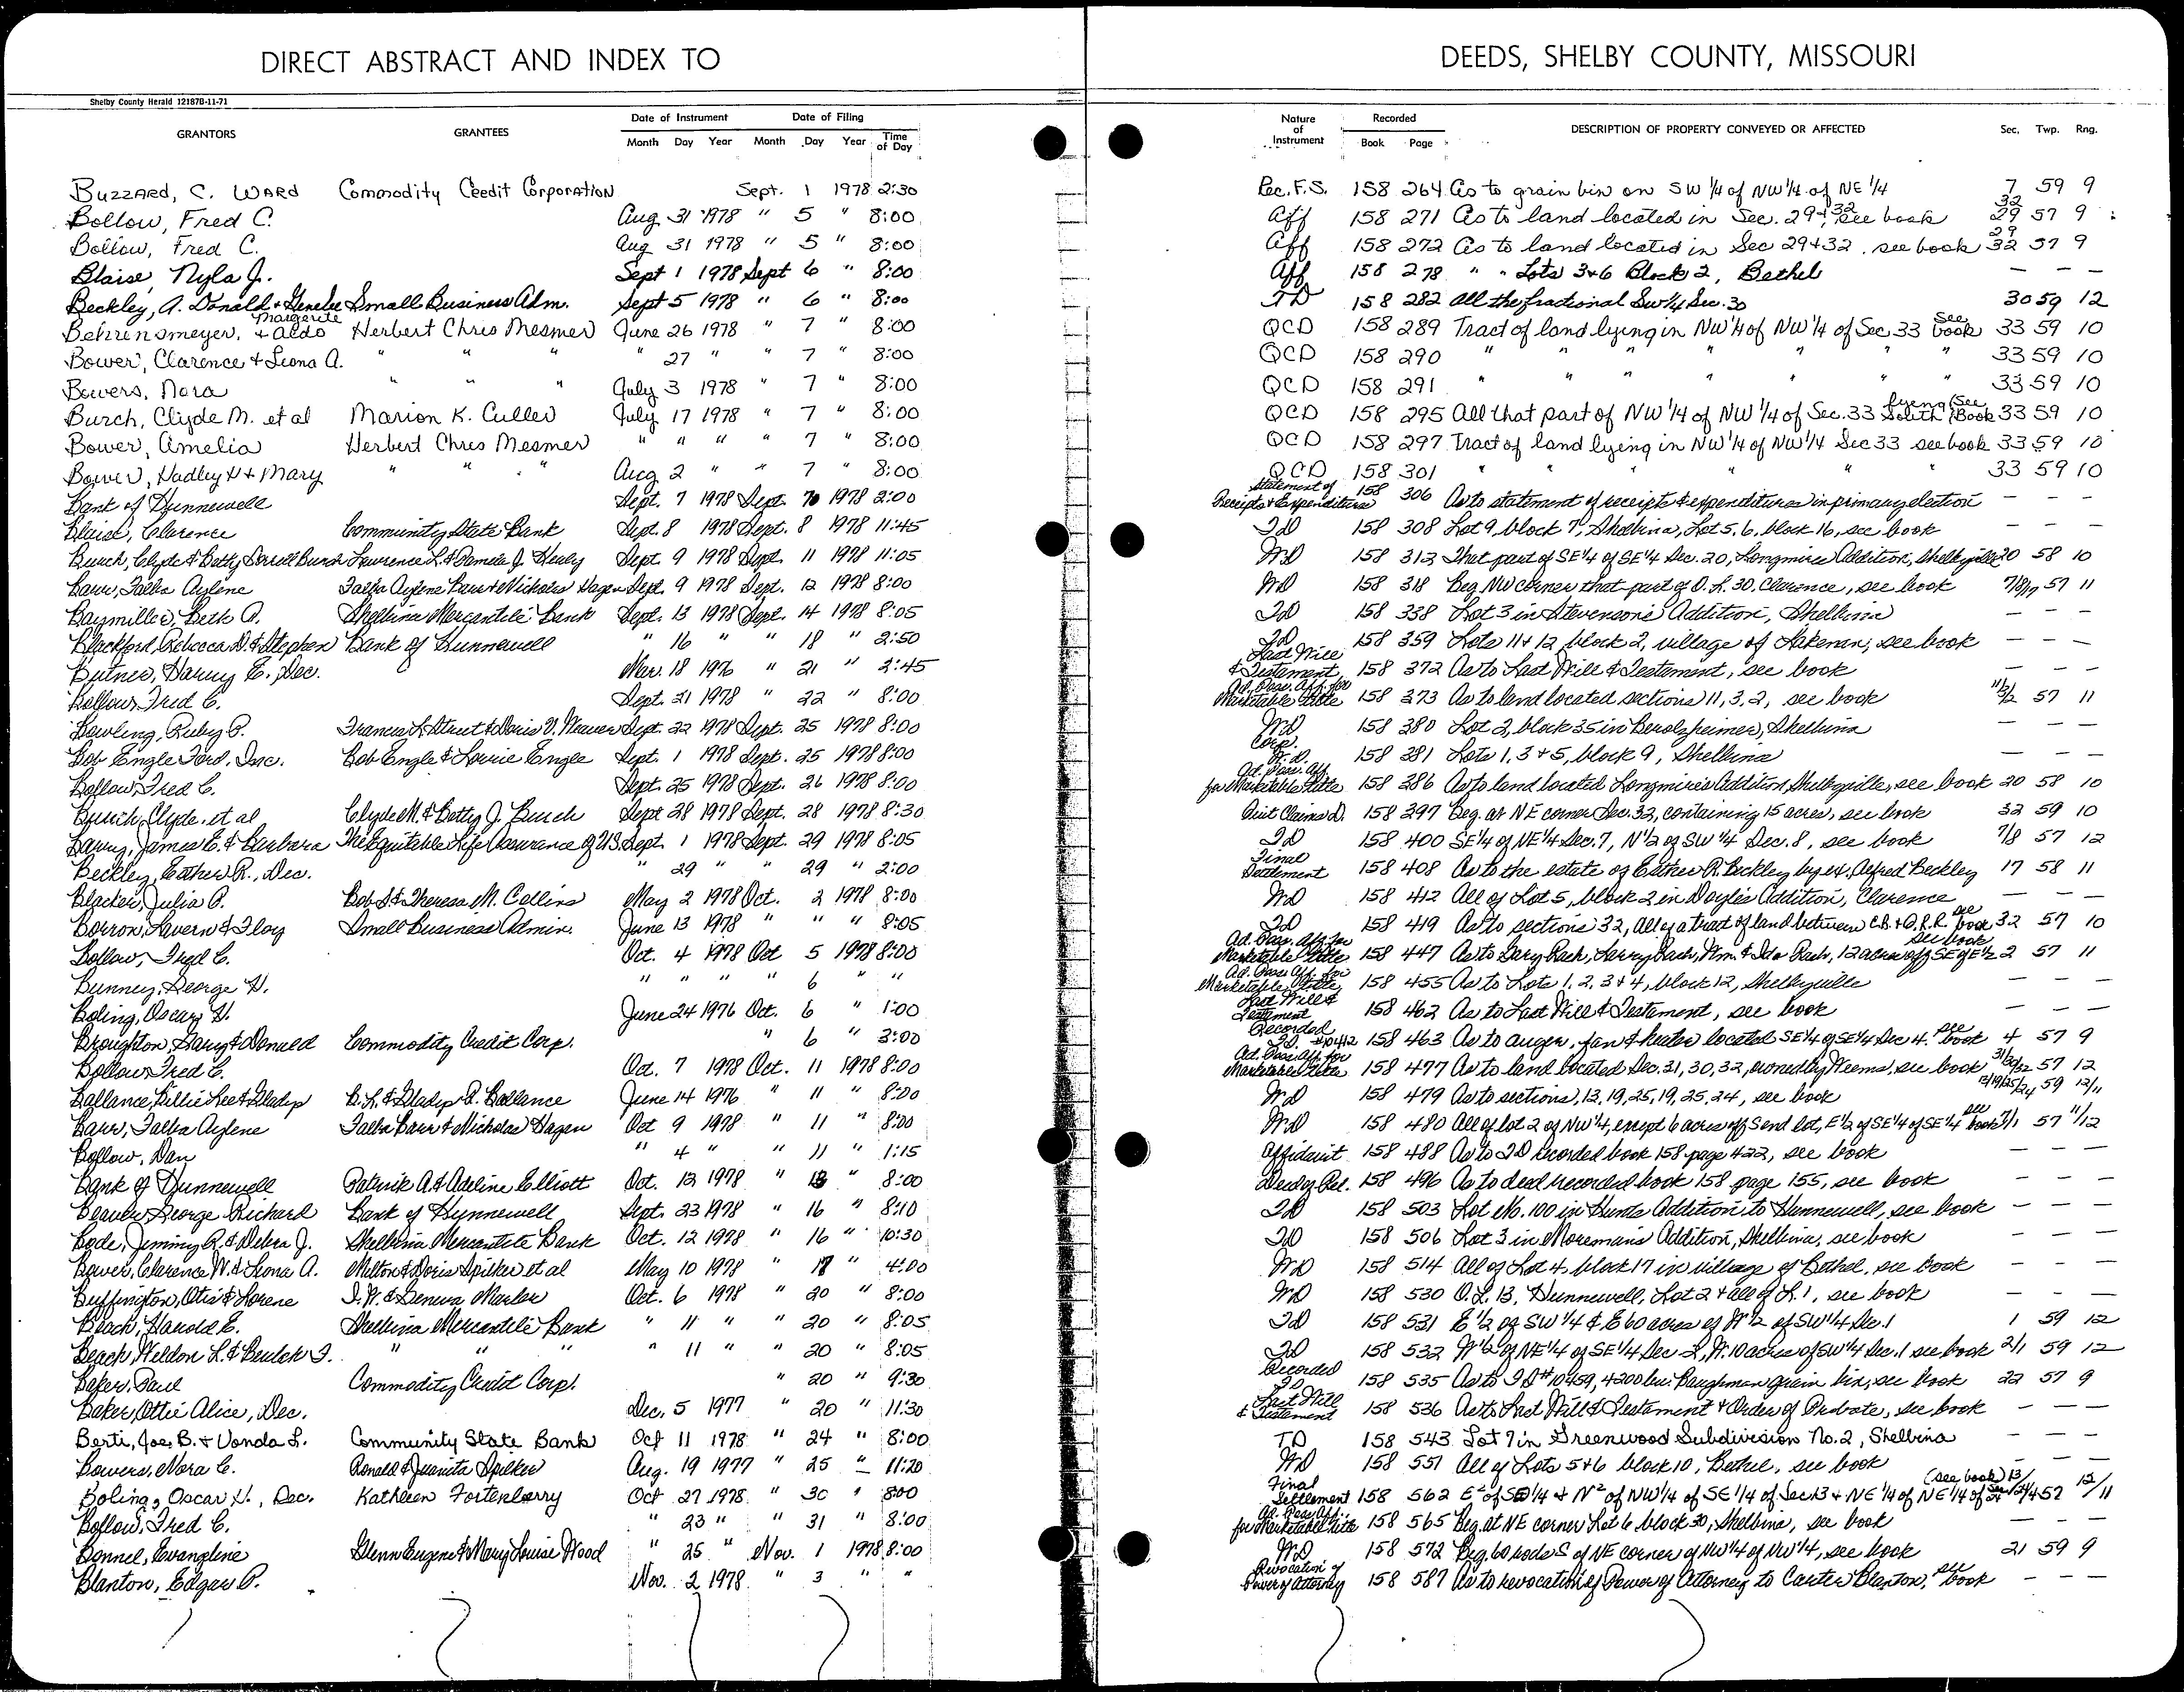 DIRECT ABSTRACT AND INDEX TO DEEDS, SHELBY COUNTY, MISSOURI
Shelby County Herald 12187B-11-71
GRANTORS GRANTEES Date of Instrument Month Day Year Date of Filing Month Day Year Time of Day Nature of Instrument Recorded Book Page DESCRIPTION OF PROPERTY CONVEYED OR AFFECTED Sec. Twp. Rng.
BUZZARD, C. WARD Commodity Credit Corporation Sept. 1 1978 2:30 Rec. F.S. 158 264 As to grain bin on SW 1/4 of NW 1/4 of NE 1/4 7 59 9
Bollow, Fred C. Aug 31 1978 " 5 " 8:00 Aff 158 271 As to land located in Sec. 29+32, see book 32 29 57 9
Bollow, Fred C. Aug 31 1978 " 5 " 8:00 Aff 158 272 As to land located in Sec 29+32, see book 29 32 57 9
Blaise, Nyla J. Sept 1 1978 Sept 6 " 8:00 Aff 158 278 " " Lots 3+6 Block 2, Bethel — — —
Beckley, A. Donald + Genelee Small Business Adm. Sept 5 1978 " 6 " 8:00 TD 158 282 All the fractional SW 1/4 Sec. 30 30 59 12
Behrensmeyer, Margerite + Aldo Herbert Chris Mesmer June 26 1978 " 7 " 8:00 QCD 158 289 Tract of land lying in NW 1/4 of NW 1/4 of Sec 33 See book 33 59 10
Bower, Clarence + Leona A. " " " " 27 " " 7 " 8:00 QCD 158 290 " " " " " " " 33 59 10
Bowers, Nora " " " July 3 1978 " 7 " 8:00 QCD 158 291 " " " " " " 33 59 10
Burch, Clyde M. et al Marion K. Culler July 17 1978 " 7 " 8:00 QCD 158 295 All that part of NW 1/4 of NW 1/4 of Sec. 33 lying South (See Book 33 59 10
Bower, Amelia Herbert Chris Mesmer " " " " 7 " 8:00 QCD 158 297 Tract of land lying in NW 1/4 of NW 1/4 Sec 33 see book 33 59 10
Bower, Hadley H + Mary " " " Aug 2 " " 7 " 8:00 QCD 158 301 " " " " " " 33 59 10
Bank of Hunnewell Sept. 7 1978 Sept. 7 1978 2:00 Statement of Receipts + Expenditures 158 306 As to statement of receipts & expenditures in primary election — — —
Blaise, Clarence Community State Bank Sept. 8 1978 Sept. 8 1978 11:45 TD 158 308 Lot 9, block 7, Shelbina, Lot 5, 6, block 16, see book — —
Burch, Clyde & Betty Lawrence L. & Pamela J. Sept. 9 1978 Sept. 11 1978 11:05 WD 158 313 That part of SE 1/4 of SE 1/4 Sec. 20, Longmire Addition, Shelbyville 20 58 10
Barr, Talba Aylene Talba Aylene Barr & Nicholas Hagen Sept. 9 1978 Sept. 12 1978 8:00 WD 158 318 Beg NW corner that part of O. L. 30, Clarence, see book 57 11
Baymiller, Beth A. Shelbina Mercantile Bank Sept. 13 1978 Sept. 14 1978 8:05 TD 158 338 Lot 3 in Stevenson's Addition, Shelbina — — —
Blackford, Rebecca D. & Stephen Bank of Hunnewell " 16 " " 18 " 2:50 TD 158 359 Lots 11 + 12, block 2, village of Lakenan, see book — — —
Butner, Harry E., Dec. Mar. 18 1976 " 21 " 2:45 Last Will & Testament 158 372 As to Last Will & Testament, see book — — —
Bollow, Fred C. Sept. 21 1978 " 22 " 8:00 Ad. Poss. Aff. for Marketable Title 158 373 As to land located sections 11, 3, 2, see book 11/3/2 57 11
Bowling, Ruby P. Francis L. Street & Doris V. Weaver Sept. 22 1978 Sept. 25 1978 8:00 WD 158 380 Lot 2, block 35 in Berolzheimer, Shelbina — — —
Bob Engle Ford, Inc. Bob Engle & Louise Engle Sept. 1 1978 Sept. 25 1978 8:00 Corp. W.D. 158 381 Lots 1, 3 + 5, block 9, Shelbina — — —
Bollow, Fred C. Sept. 25 1978 Sept. 26 1978 8:00 Ad. Poss. Aff for Marketable Title 158 386 As to land located Longmire's Addition, Shelbyville, see book 20 58 10
Burch, Clyde, et al Clyde M. & Betty J. Burch Sept 28 1978 Sept. 28 1978 8:30 Quit Claim D. 158 397 Beg. at NE corner Sec. 32, containing 15 acres, see book 32 59 10
Barry, James E. & Barbara The Equitable Life Assurance of U.S. Sept. 1 1978 Sept. 29 1978 8:05 TD 158 400 SE 1/4 of NE 1/4 Sec. 7, N 1/2 of SW 1/4 Sec. 8, see book 7/8 57 12
Beckley, Esther R., Dec. " 29 " " 29 " 2:00 Final Settlement 158 408 As to the estate of Esther R. Beckley by ex. Alfred Beckley 17 58 11
Blacker, Julia P. Bob & Theresa M. Collins May 2 1978 Oct. 2 1978 8:00 WD 158 412 All of Lot 5, block 2 in Doyle's Addition, Clarence — —
Borron, Lavern & Floy Small Business Admin. June 13 1978 " " " 8:05 TD 158 419 As to sections 32, All of a tract of land between C.B. & Q. R.R. see book 32 57 10
Bollow, Fred C. Oct. 4 1978 Oct 5 1978 8:00 Ad. Poss. Aff. for Marketable Title 158 447 As to Gary Rash, Larry Rash, Wm. & Ida Rash, 12 acres off SE of E 1/2 see book 2 57 11
Bunney, George H. " " " " 6 " " Ad. Poss. Aff. for Marketable Title 158 455 As to Lots 1, 2, 3 + 4, block 12, Shelbyville — — —
Boling, Oscar H. June 24 1976 Oct. 6 " 1:00 Last Will & Testament 158 462 As to Last Will & Testament, see book — — —
Broughton, Gary & Donald Commodity Credit Corp. " 6 " 3:00 Recorded I.D. #10412 158 463 As to auger, fan & heater located SE 1/4 of SE 1/4 Sec 4. see book 4 57 9
Bollow, Fred C. Oct. 7 1978 Oct. 11 1978 8:00 Ad. Poss. Aff for Marketable Title 158 477 As to land located Sec. 31, 30, 32, owned by Weems, see book 31/30/32 57 12
Ballance, Billie Lee & Gladys B. L. & Gladys A. Ballance June 14 1976 " 11 " 8:00 WD 158 479 As to sections, 13, 19, 25, 19, 25, 24, see book 13/19/25/24 59 12/11
Barr, Talba Aylene Talba Barr & Nicholas Hagen Oct 9 1978 " 11 " 8:00 WD 158 480 All of lot 2 of NW 1/4, except 6 acres off S end lot, E 1/2 of SE 1/4 of SE 1/4 see book 7/1 57 11/12
Bollow, Dan " 4 " " 11 " 1:15 Affidavit 158 488 As to TD Recorded book 158 page 422, see book — — —
Bank of Hunnewell Patrick A. & Adeline Elliott Oct. 12 1978 " 13 " 8:00 Deed of Rel. 158 496 As to deed recorded book 158 page 155, see book — — —
Beaver, George Richard Bank of Hunnewell Sept. 23 1978 " 16 " 8:10 TD 158 503 Lot No. 100 in Hunts Addition to Hunnewell, see book — — —
Bode, Jimmy R. & Debra J. Shelbina Mercantile Bank Oct. 12 1978 " 16 " 10:30 TD 158 506 Lot 3 in Moreman's Addition, Shelbina, see book — — —
Bower, Clarence W. & Leona A. Milton & Doris Spilker et al May 10 1978 " 17 " 4:00 WD 158 514 All of Lot 4, block 17 in village of Bethel, see book — — —
Buffington, Otis & Lorene I. W. & Geneva Marler Oct. 6 1978 " 20 " 8:00 WD 158 530 O. L. 13, Hunnewell, Lot 2 + all of L. 1, see book — — —
Beach, Harold E. Shelbina Mercantile Bank " 11 " " 20 " 8:05 TD 158 531 E 1/2 of SW 1/4 & E 60 acres of W 1/2 of SW 1/4 Sec. 1 1 59 12
Beach, Weldon L. & Beulah I. " " " " 11 " " 20 " 8:05 TD 158 532 W 1/2 of NE 1/4 of SE 1/4 Sec 2, W. 10 acres of SW 1/4 Sec. 1 see book 2/1 59 12
Baker, Paul Commodity Credit Corp. " 20 " 9:30 Recorded I.D. 158 535 As to I D # 10459, 4200 bu. Baughman grain bin, see book 22 57 9
Baker, Ottie Alice, Dec. Dec. 5 1977 " 20 " 11:30 Last Will & Testament 158 536 As to Last Will & Testament & Order of Probate, see book — — —
Berti, Joe, B. + Vonda L. Community State Bank Oct 11 1978 " 24 " 8:00 TD 158 543 Lot 7 in Greenwood Subdivision No. 2, Shelbina — — —
Bowers, Nora C. Ronald & Juanita Spilker Aug. 19 1977 " 25 " 11:20 WD 158 551 All of Lots 5 + 6 block 10, Bethel, see book — — —
Boling, Oscar H., Dec. Kathleen Fortenberry Oct 27 1978 " 30 " 8:00 Final Settlement 158 562 of NW 1/4 of SE 1/4 of Sec 13 + NE 1/4 of NE 1/4 of (see book)
Bollow, Fred C. " 23 " " 31 " 8:00 Ad. Poss. Aff. for Marketable Title 158 565 Beg. at NE corner Lot 6 block 30, Shelbina, see book — — —
Bonnel, Evangline Glenn Eugene & Mary Louise Wood " 25 " Nov. 1 1978 8:00 WD 158 572 Beg. 60 rods S of NE corner of NW 1/4 of NW 1/4, see book 21 59 9
Blanton, Edgar P. Nov. 2 1978 " 3 " " Revocation of Power of Attorney 158 587 As to revocation of Power of Attorney to Carter Blanton, see book — — —